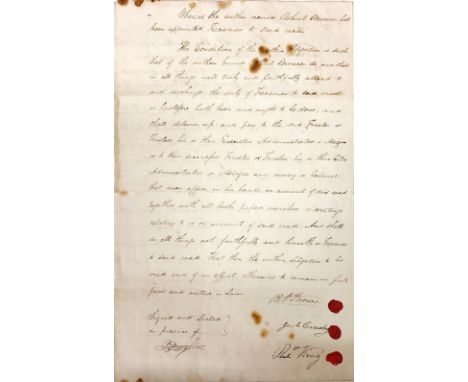 Whereas the within named Robert Browne hath
been appointed Treasurer to said road
The Condition of the within Obligation is such
that if the within bound Robert Browne do and shall
in all things well truly and faithfully attend to
and discharge the duty of Treasurer to said road
as heretofore hath been and ought to be done; and
shall deliver up and pay to the said Trustees
Trustees his or their Executors Administrators or Assigns
or to their successors Trustee or Trustees his or their
Administrators or Assigns any money or balance
that may appear in his hands on account of said road
together with all books papers vouchers or writings
relating to or on account of said road. And shall
in all things act faithfully and honestly as Treasurer
to said road. That then the within obligation to be
void and of no effect otherwise to remain in full
force and virtue in Law
Signed and Sealed
in presence of
Browne